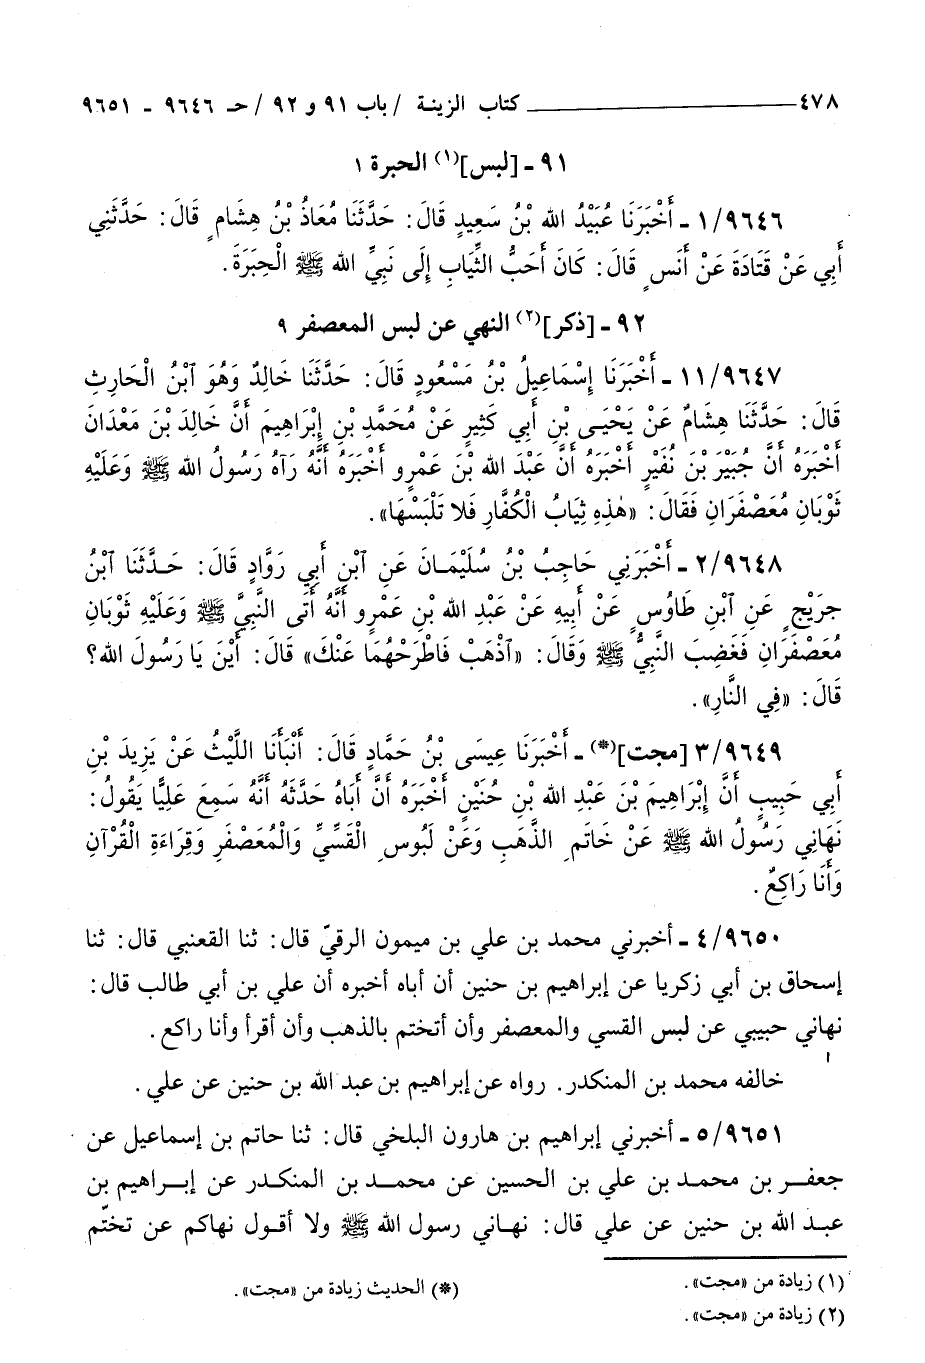 ٤٧٨ ــــــــــــــــــــــــ كتاب الزينة / باب ٩١ و ٩٢ / حـ ٩٦٤٦ ـ ٩٦٥١
٩١ ـ [لبس](١) الحبرة ١
١/٩٦٤٦ ـ أَخْبَرَنَا عُبَيْدُ الله بْنُ سَعِيدٍ قَالَ: حَدَّثَنَا مُعَاذُ بْنُ هِشَامٍ قَالَ: حَدَّثَنِي
أَبِي عَنْ قَتَادَةَ عَنْ أَنَسٍ قَالَ: كَانَ أَحَبُّ الثِّيَابِ إِلَى نَبِيِّ الله ﷺ الْحِبَرَةَ.
٩٢ ـ [ذكر](٢) النهي عن لبس المعصفر ٩
١١/٩٦٤٧ ـ أَخْبَرَنَا إِسْمَاعِيلُ بْنُ مَسْعُودٍ قَالَ: حَدَّثَنَا خَالِدٌ وَهُوَ ٱبْنُ الْحَارِثِ
قَالَ: حَدَّثَنَا هِشَامٌ عَنْ يَحْيَى بْنِ أَبِي كَثِيرٍ عَنْ مُحَمَّدِ بْنِ إِبْرَاهِيمَ أَنَّ خَالِدَ بْنَ مَعْدَانَ
أَخْبَرَهُ أَنَّ جُبَيْرَ بْنَ نُفَيْرٍ أَخْبَرَهُ أَنَّ عَبْدَ الله بْنَ عَمْرٍو أَخْبَرَهُ أَنَّهُ رَآهُ رَسُولُ الله ﷺ وَعَلَيْهِ
ثَوْبَانِ مُعَصْفَرَانِ فَقَالَ: «هٰذِهِ ثِيَابُ الْكُفَّارِ فَلا تَلْبَسْهَا».
٢/٩٦٤٨ ـ أَخْبَرَنِي حَاجِبُ بْنُ سُلَيْمَـانَ عَنِ ٱبْنِ أَبِي رَوَّادٍ قَالَ: حَـدَّثَنَا ٱبْنُ
جرَيْجٍ عَنِ ٱبْنِ طَاوُسٍ عَنْ أَبِيهِ عَنْ عَبْدِ الله بْنِ عَمْرٍو أَنَّهُ أَتَى النَّبِيَّ ﷺ وَعَلَيْهِ ثَوْبَانِ
مُعَصْفَرَانِ فَغَضِبَ النَّبِيُّ ﷺ وَقَالَ: «ٱذْهَبْ فَاطْرَحْهُمَا عَنْكَ» قَالَ: أَيْنَ يَا رَسُولَ الله؟
قَالَ: «فِي النَّارِ».
٣/٩٦٤٩ [مجت](*) ـ أَخْبَرَنَا عِيسَى بْنُ حَمَّادٍ قَالَ: أَنْبَأَنَا اللَّيْثُ عَنْ يَزِيدَ بْنِ
أَبِي حَبِيبٍ أَنَّ إِبْرَاهِيمَ بْنَ عَبْدِ الله بْنِ حُنَيْنٍ أَخْبَرَهُ أَنَّ أَبَاهُ حَدَّثَهُ أَنَّهُ سَمِعَ عَلِيًّا يَقُولُ:
نَهَانِي رَسُولُ الله ﷺ عَنْ خَاتَمِ الذَّهَبِ وَعَنْ لَبُوسِ الْقَسِّيِّ وَالْمُعَصْفَرِ وَقِرَاءَةِ الْقُرْآنِ
وَأَنَا رَاكِعٌ.
٤/٩٦٥٠ ـ أخبرني محمد بن علي بن ميمون الرقيّ قال: ثنا القعنبي قال: ثنا
إسحاق بن أبي زكريا عن إبراهيم بن حنين أن أباه أخبره أن علي بن أبي طالب قال:
نهاني حبيبي عن لبس القسي والمعصفر وأن أتختم بالذهب وأن أقرأ وأنا راكع.
خالفه محمد بن المنكدر. رواه عن إبراهيم بن عبد الله بن حنين عن علي.
٥/٩٦٥١ ـ أخبرني إبراهيم بن هارون البلخي قال: ثنا حاتم بن إسماعيل عن
جعفـر بن محمـد بن علي بن الحسين عن محمـد بن المنكـدر عن إبـراهيم بن
عبـد الله بن حنين عن علي قال: نهـاني رسول الله ﷺ ولا أقـول نهاكم عن تختّم
(١) زيادة من «مجت».
(*) الحديث زيادة من «مجت».
(٢) زيادة من «مجت».